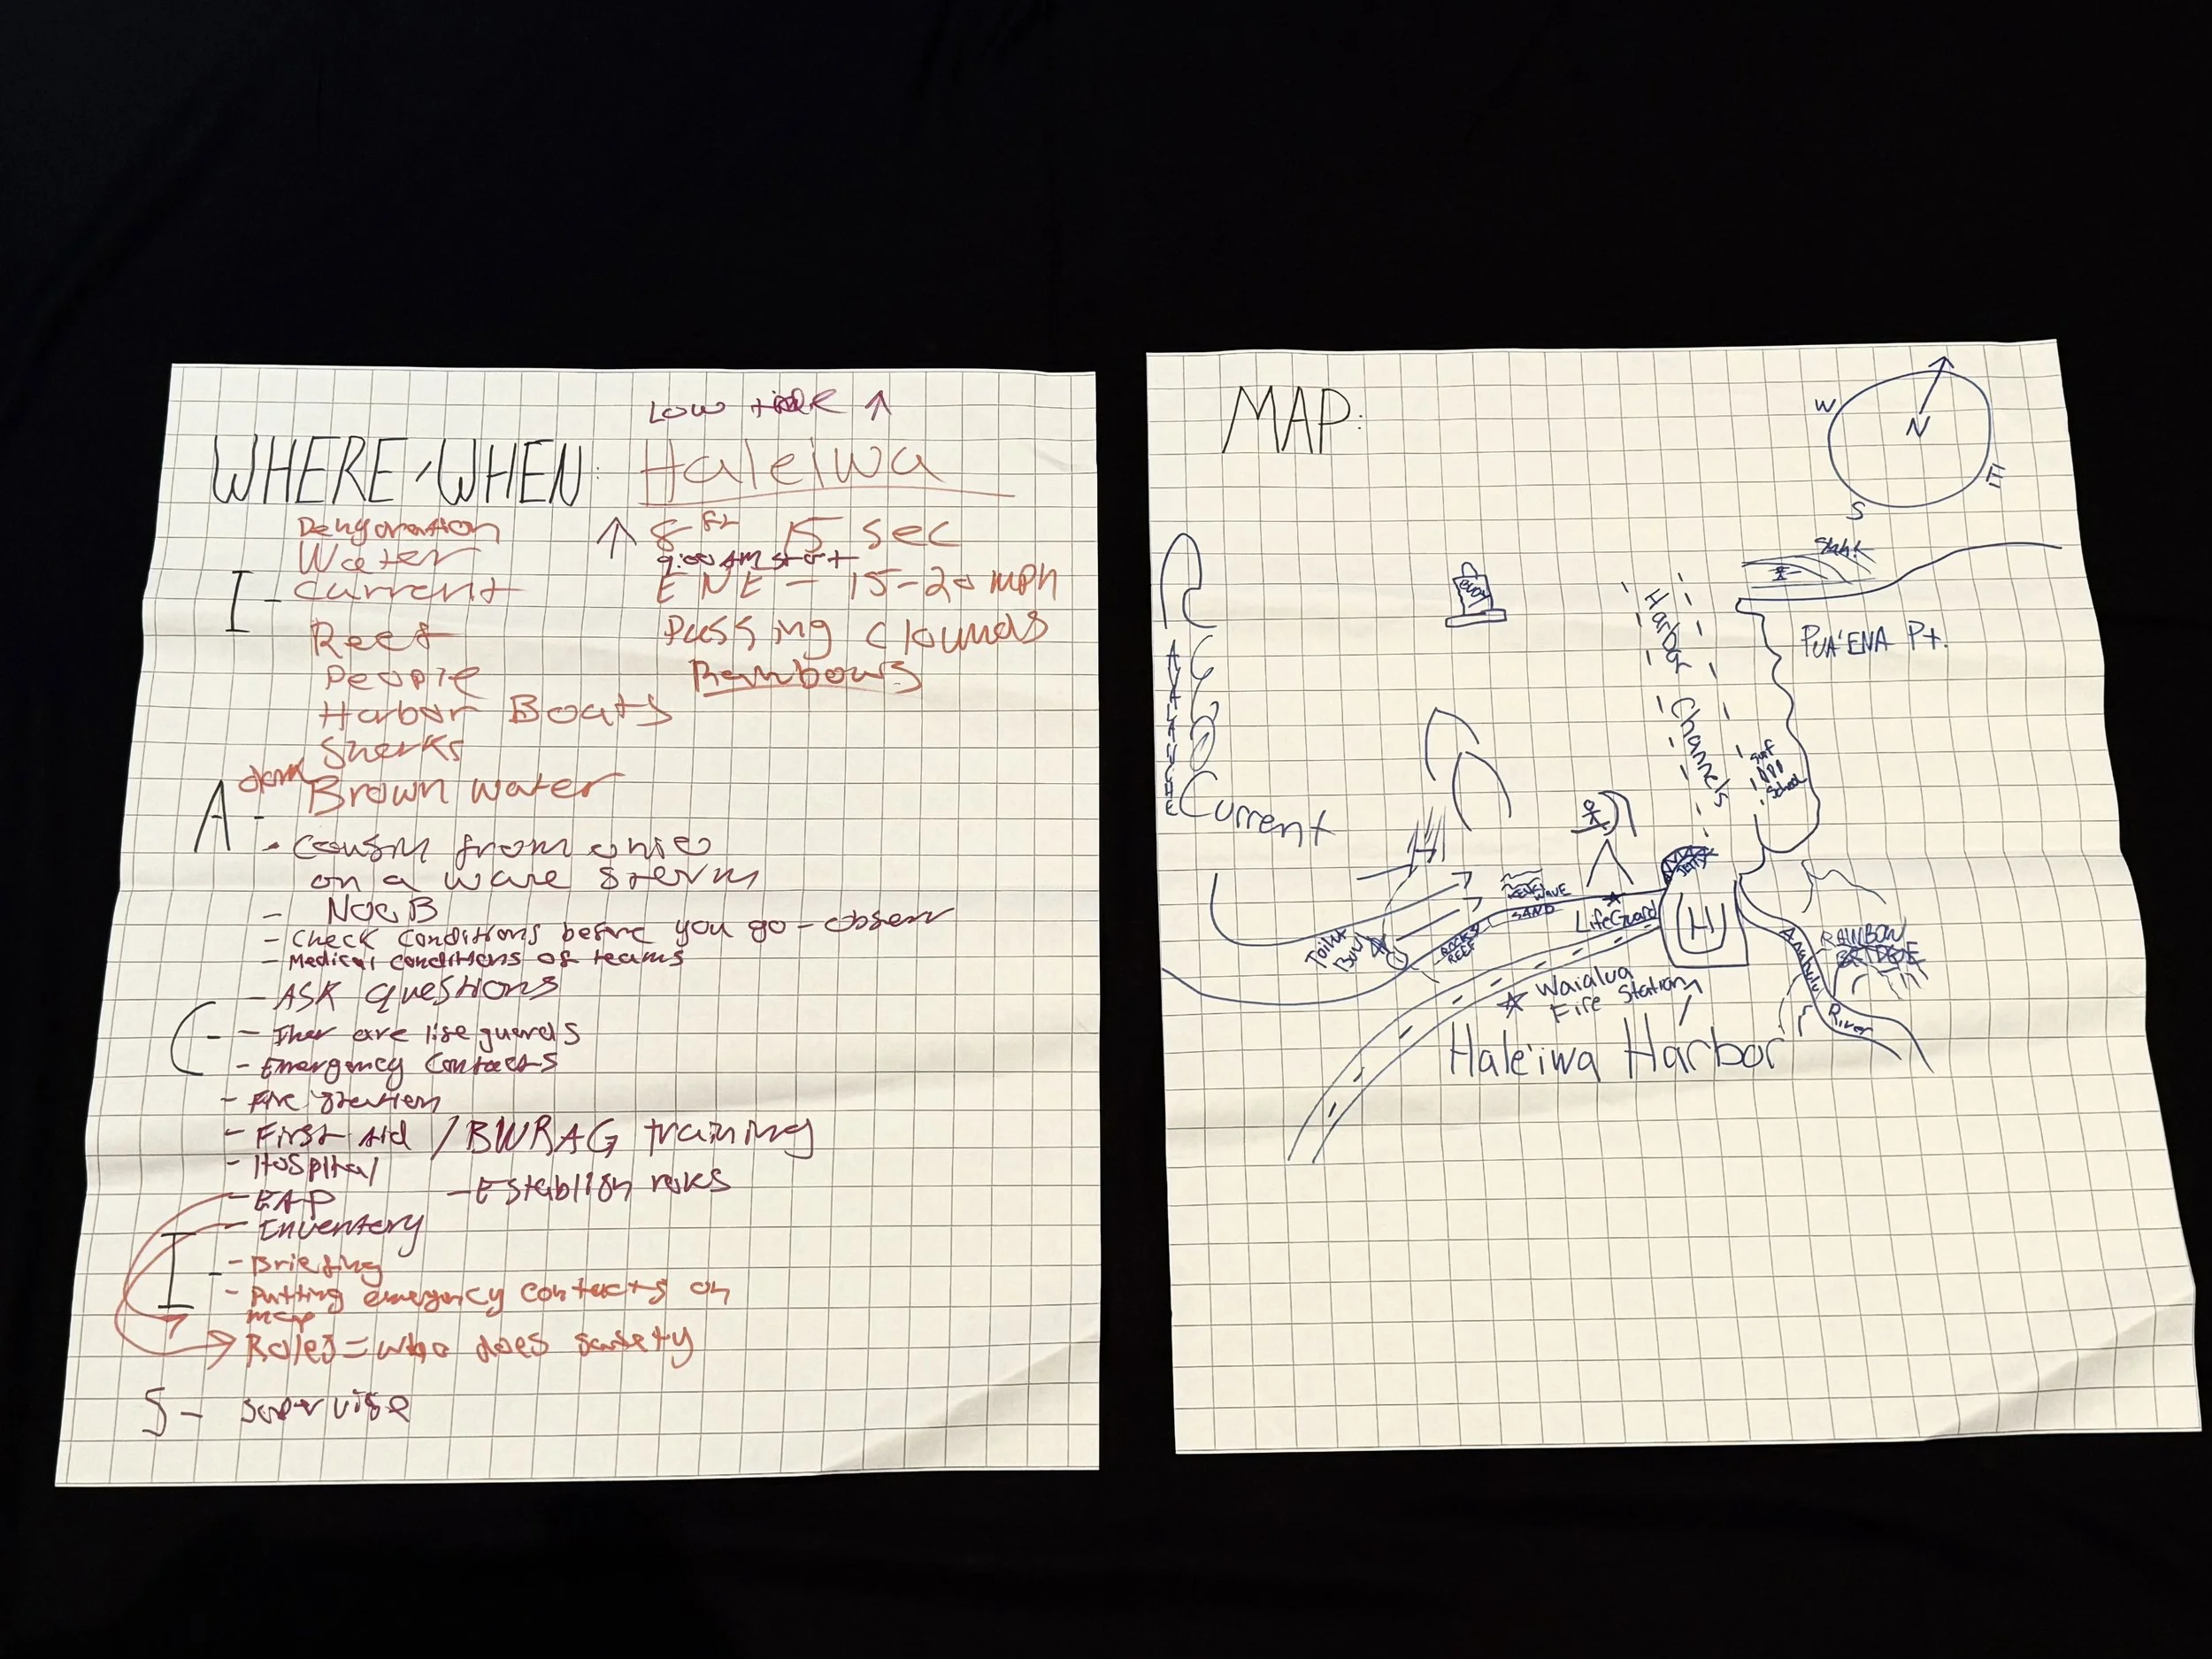 LOW tide ↑
WHERE/WHEN: Haleiwa
↑ 8 ft 15 sec
9:00 AM start
ENE - 15-20 mph
Passing Clounds
Rambows
I -
Water
Current
Reef
People
Harbor Boats
Sherks
Brown water
A -
from
on a
- NooB
- Check conditions before you go - observ
- Medical conditions of teams
- ASK questions
C -
- Ther are life guards
- Emergency Contacts
- Fire Station
- First Aid / BWRAG training
- Hospital
- EAP
- Establish
- Inventory
I -
- Briefing
- Putting emergency contacts on
map
Roles = who does safety
S - supervise
MAP:
W
N
E
S
PUA'ENA Pt.
Buoy
Harbor Channels
Surf
School
AVALANCHE
Current
Toilet
Bowl
ROCKY
REEF
WAVE
SAND
LifeGuard
JETTY
H
Anahulu River
RAINBOW
BRIDGE
Waialua
Fire Station
Haleiwa Harbor